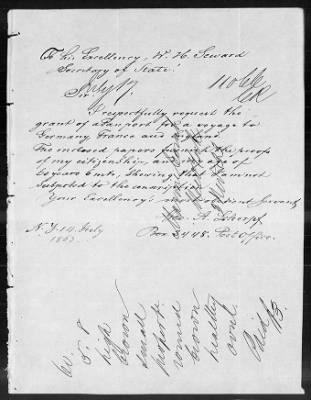 To his Excellency, W. H. Seward
Secretary of State.
Sir,
July 17
I respectfully request the
grant of a Passport for a voyage to
Germany France and England.
The enclosed papers furnish the proofs
of my citizenship, and my age of
60 years &c, Shewing that I am not
subjected to the conscription
Your Excellency's most obedient Servant
A.
Box 3448. Post Office.
N. Y. 14 July
1863.
60.
5. 8
high
brown
small
proport.
round
brown
healthy
oval.
Paid